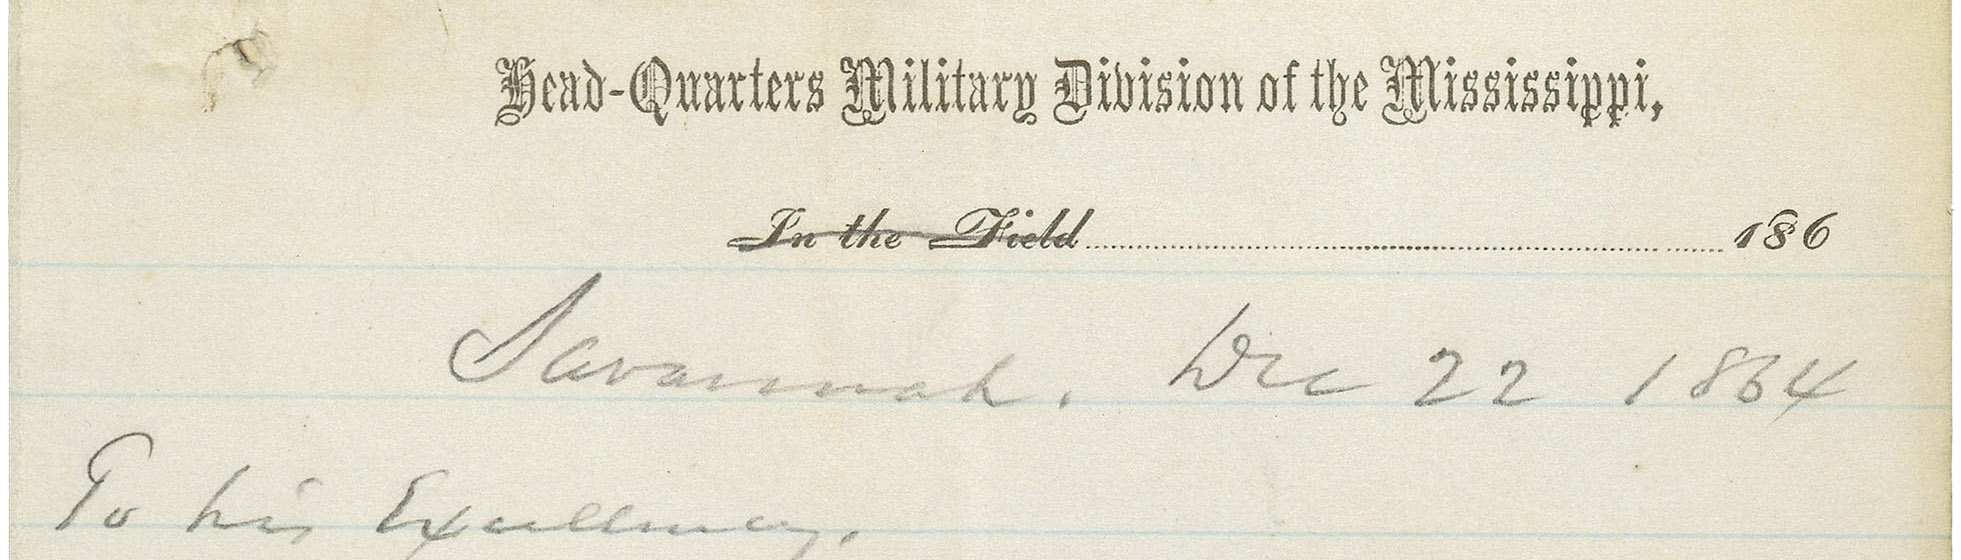 Head-Quarters Military Division of the Mississippi,
In the Field 186
Savannah. Dec 22 1864
To his Excellency.